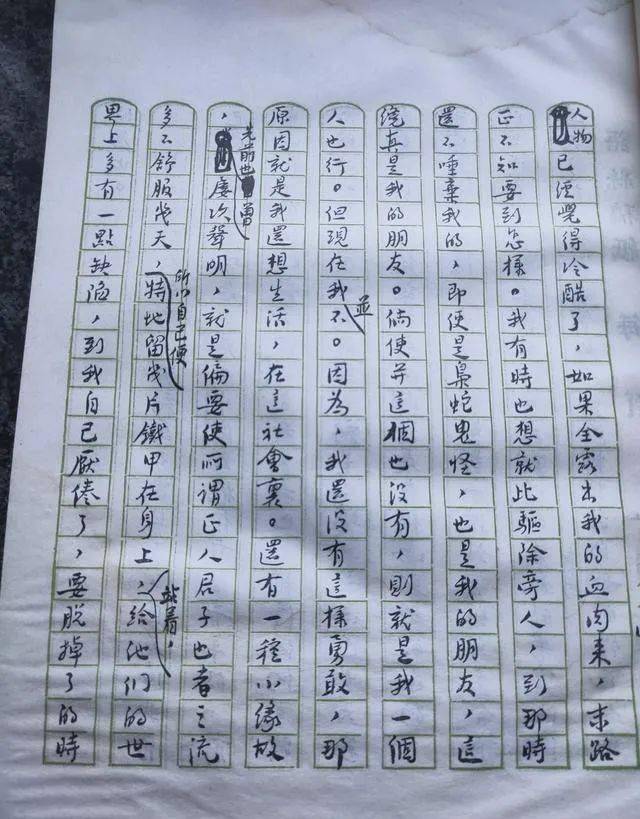 人物已經覺得冷酷了，如果全露出我的血肉來，末路
正不知要到怎樣。我有時也想就此驅除旁人，到那時
還不唾棄我的，即便是梟蛇鬼怪，也是我的朋友，這
纔真是我的朋友。倘使并這個也沒有，則就是我一個
人也行。但現在我並不。因為，我還沒有這樣勇敢，那
原因就是我還想生活，在這社會裏。還有一種小緣故
，先前也曾屢次聲明，就是偏要使所謂正人君子也者之流
多不舒服幾天，所以自己便特地留幾片鐵甲在身上，站着，給他們的世
界上多有一點缺陷，到我自己厭倦了，要脫掉了的時